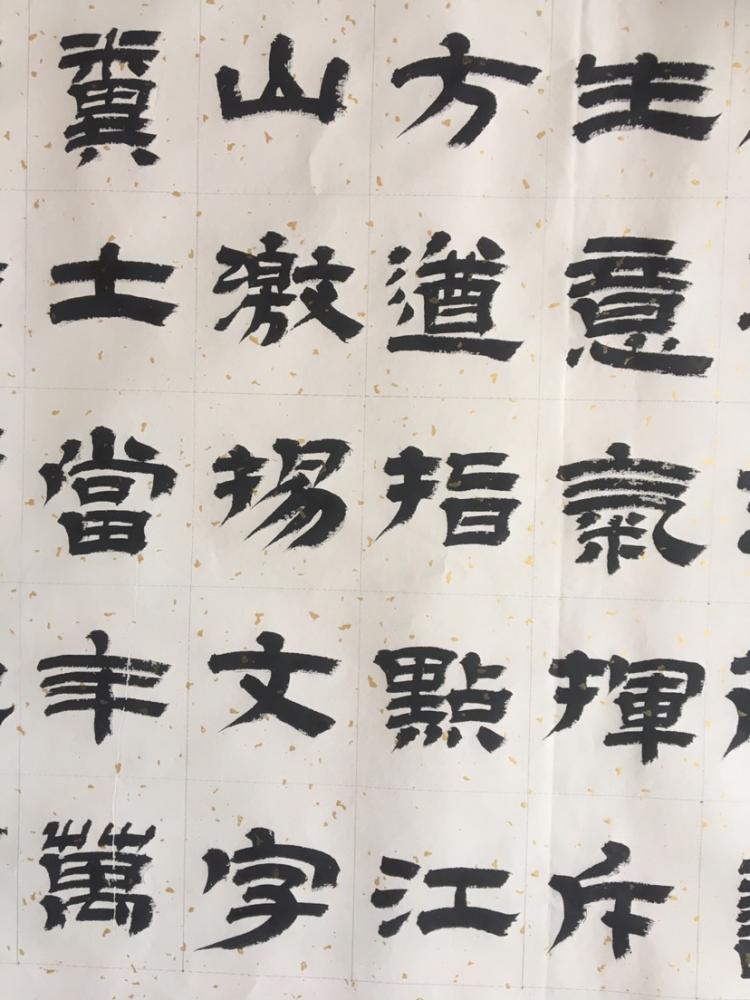 生意氣揮斥
方遒指點江
山激揚文字
糞土當年萬